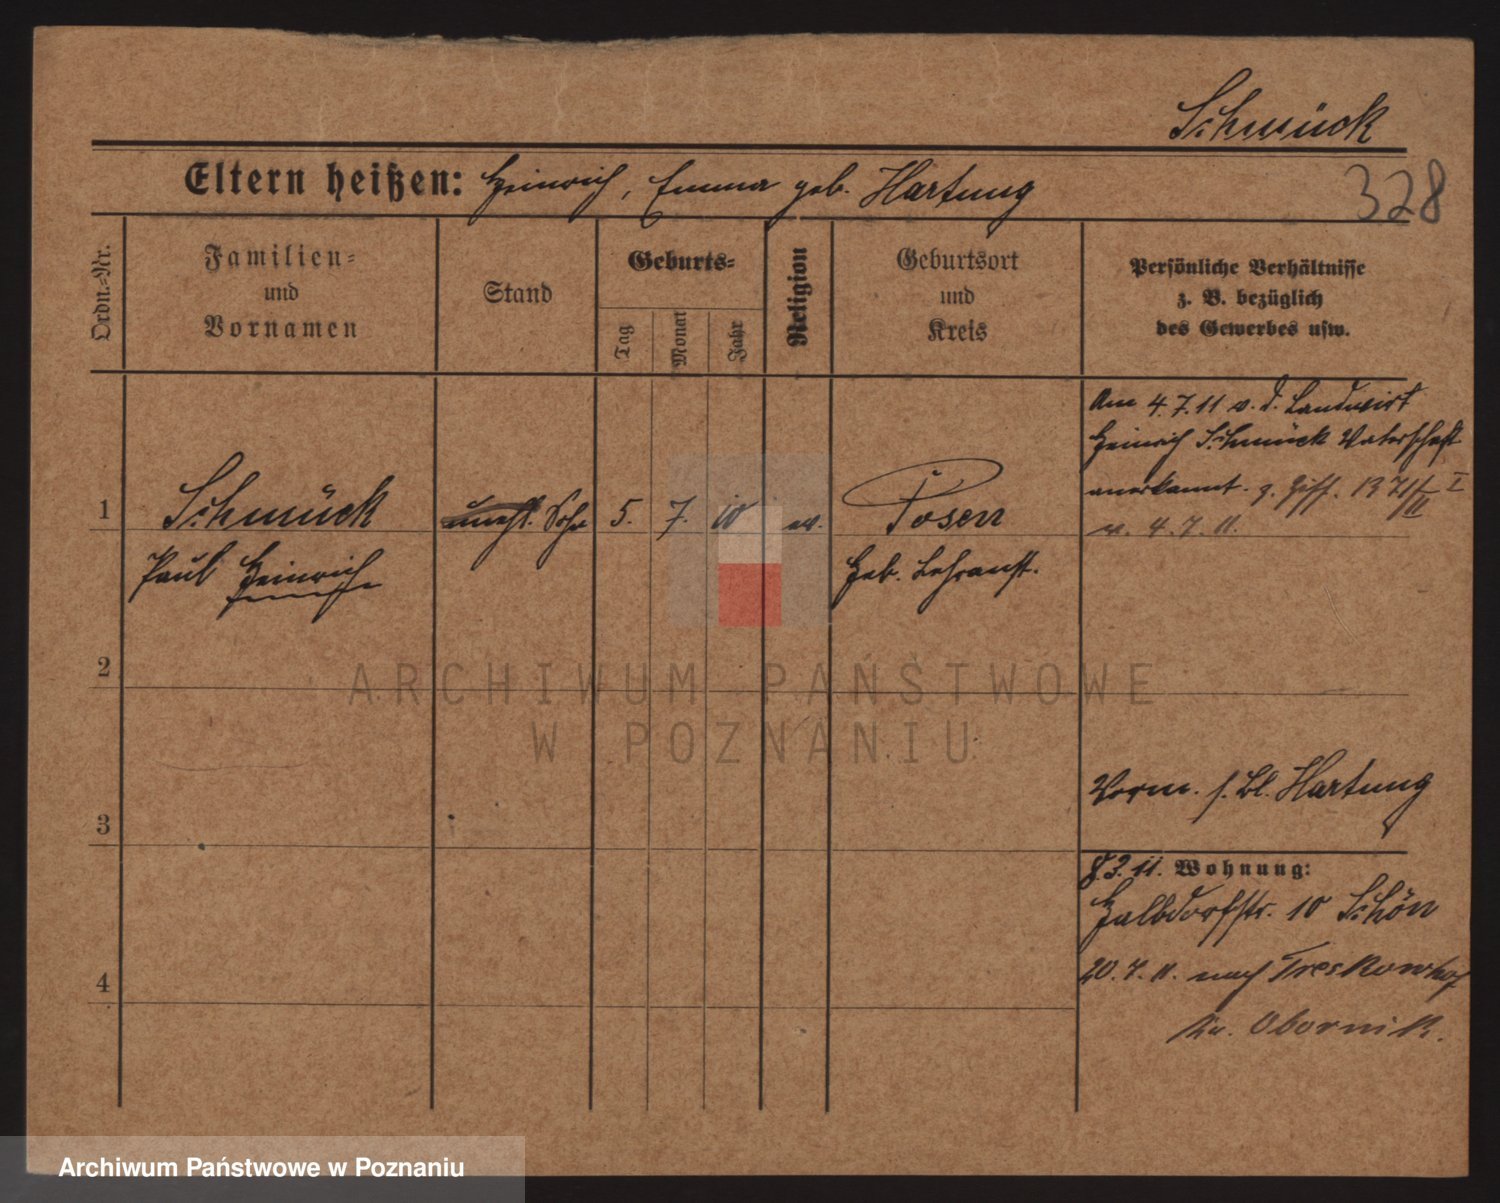 Schmück
Eltern heißen: Heinrich, Emma geb. Hartung
328
Ordn.-Nr.
Familien-
und
Vornamen
Stand
Geburts-
Tag
Monat
Jahr
Religion
Geburtsort
und
Kreis
Persönliche Verhältnisse
z. B. bezüglich
des Gewerbes usw.
Am 4.7.11 v. d. Landwirt
Heinrich Schmück Vaterschaft
anerkannt. z. Ziff.
v. 4.7.11.
1
Schmück
unehl. Sohn
5.
7.
10
ev.
Posen
Paul Heinrich
Heb. Lehranst.
2
ARCHIWUM PAŃSTWOWE
W POZNANIU
Vorm. s. Bl. Hartung
3
8.3.11. Wohnung:
Halbdorfstr. 10 Schön
20.7.11. nach Treskowhof
4
Kr. Obornik.
Archiwum Państwowe w Poznaniu